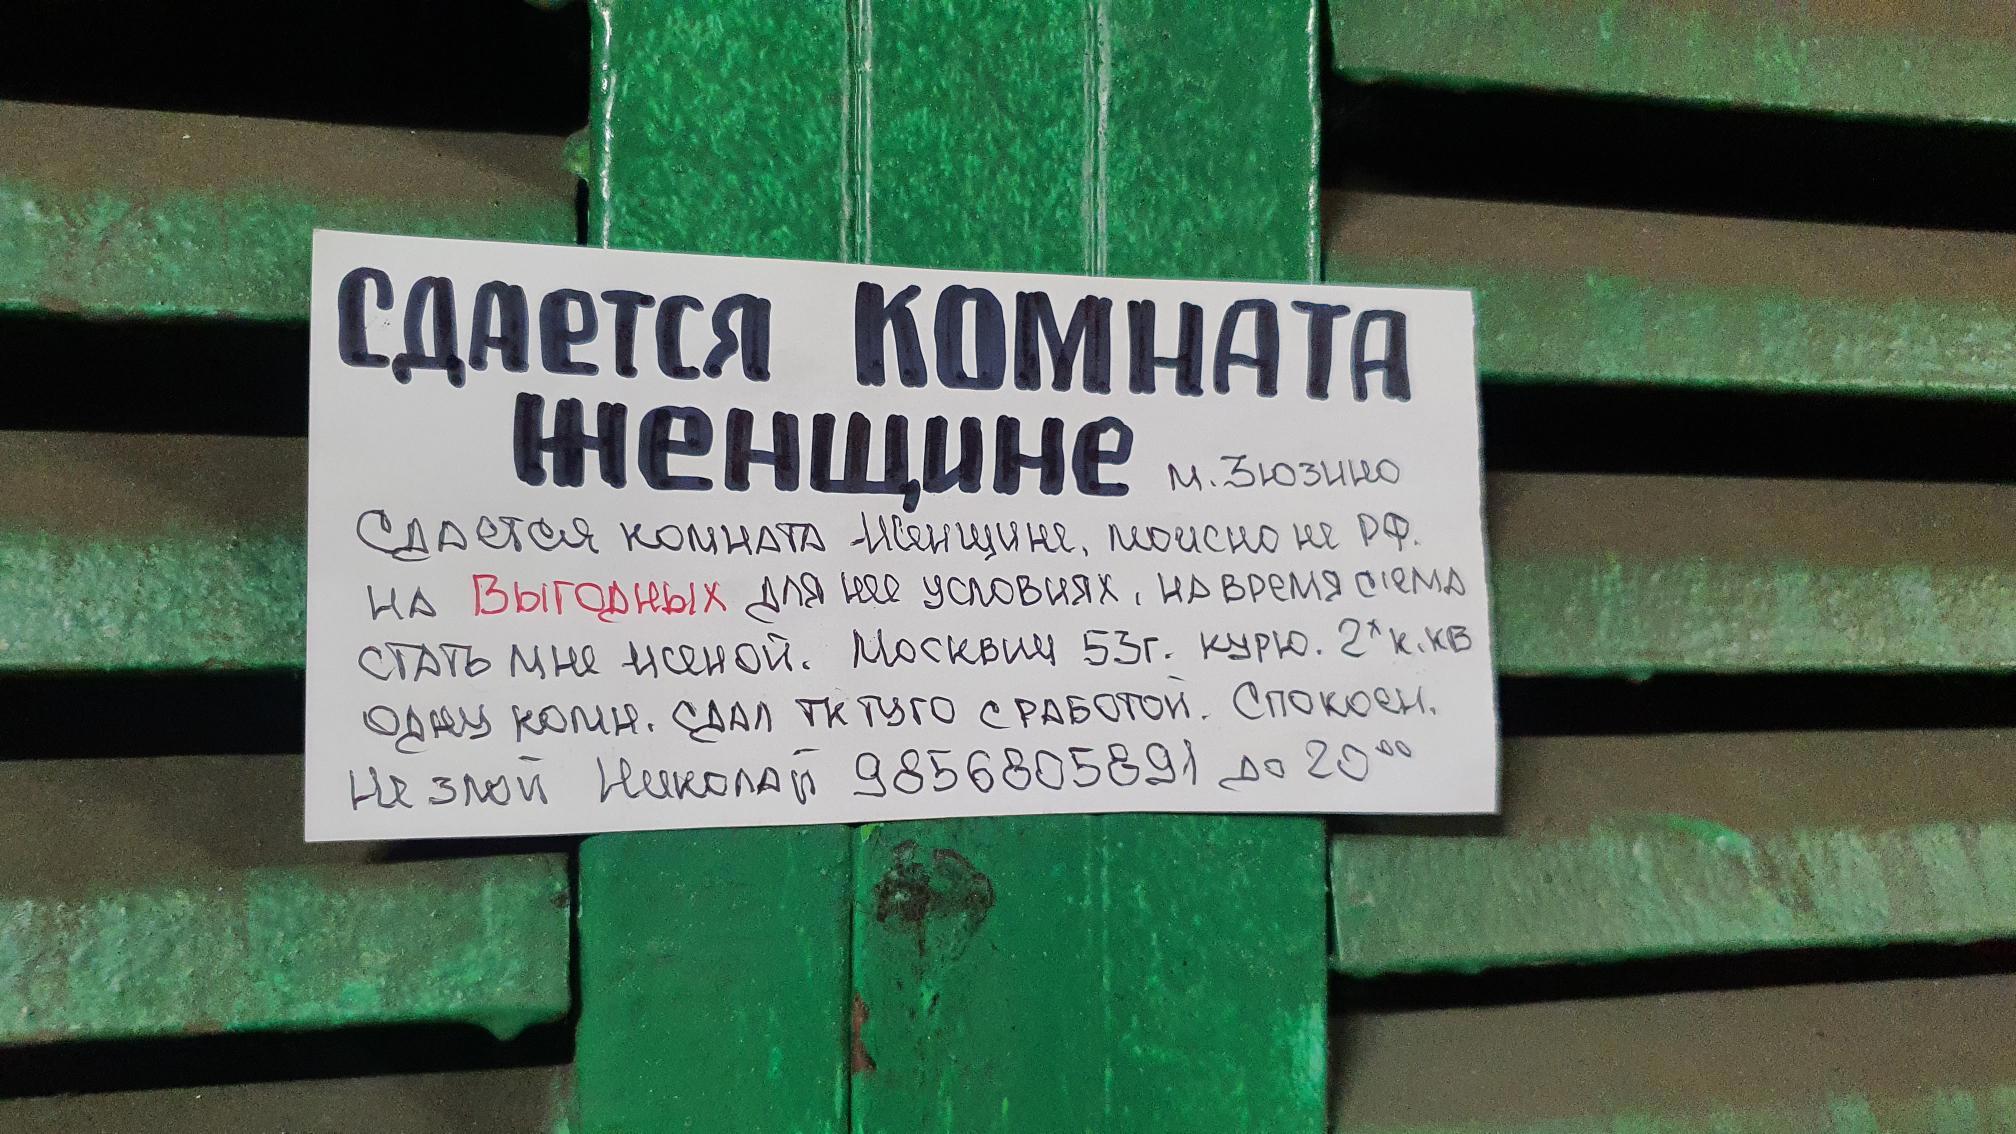 СДАЕТСЯ КОМНАТА
ЖЕНЩИНЕ м. Зюзино
Сдается комната женщине, можно не РФ.
на ВЫГОДНЫХ для нее условиях, на время сьема
стать мне женой. Москвич 53г. курю. 2х к.кв
одну комн. сдал тк туго с работой. Спокоен.
Не злой Николай 9856805891 до 20 00